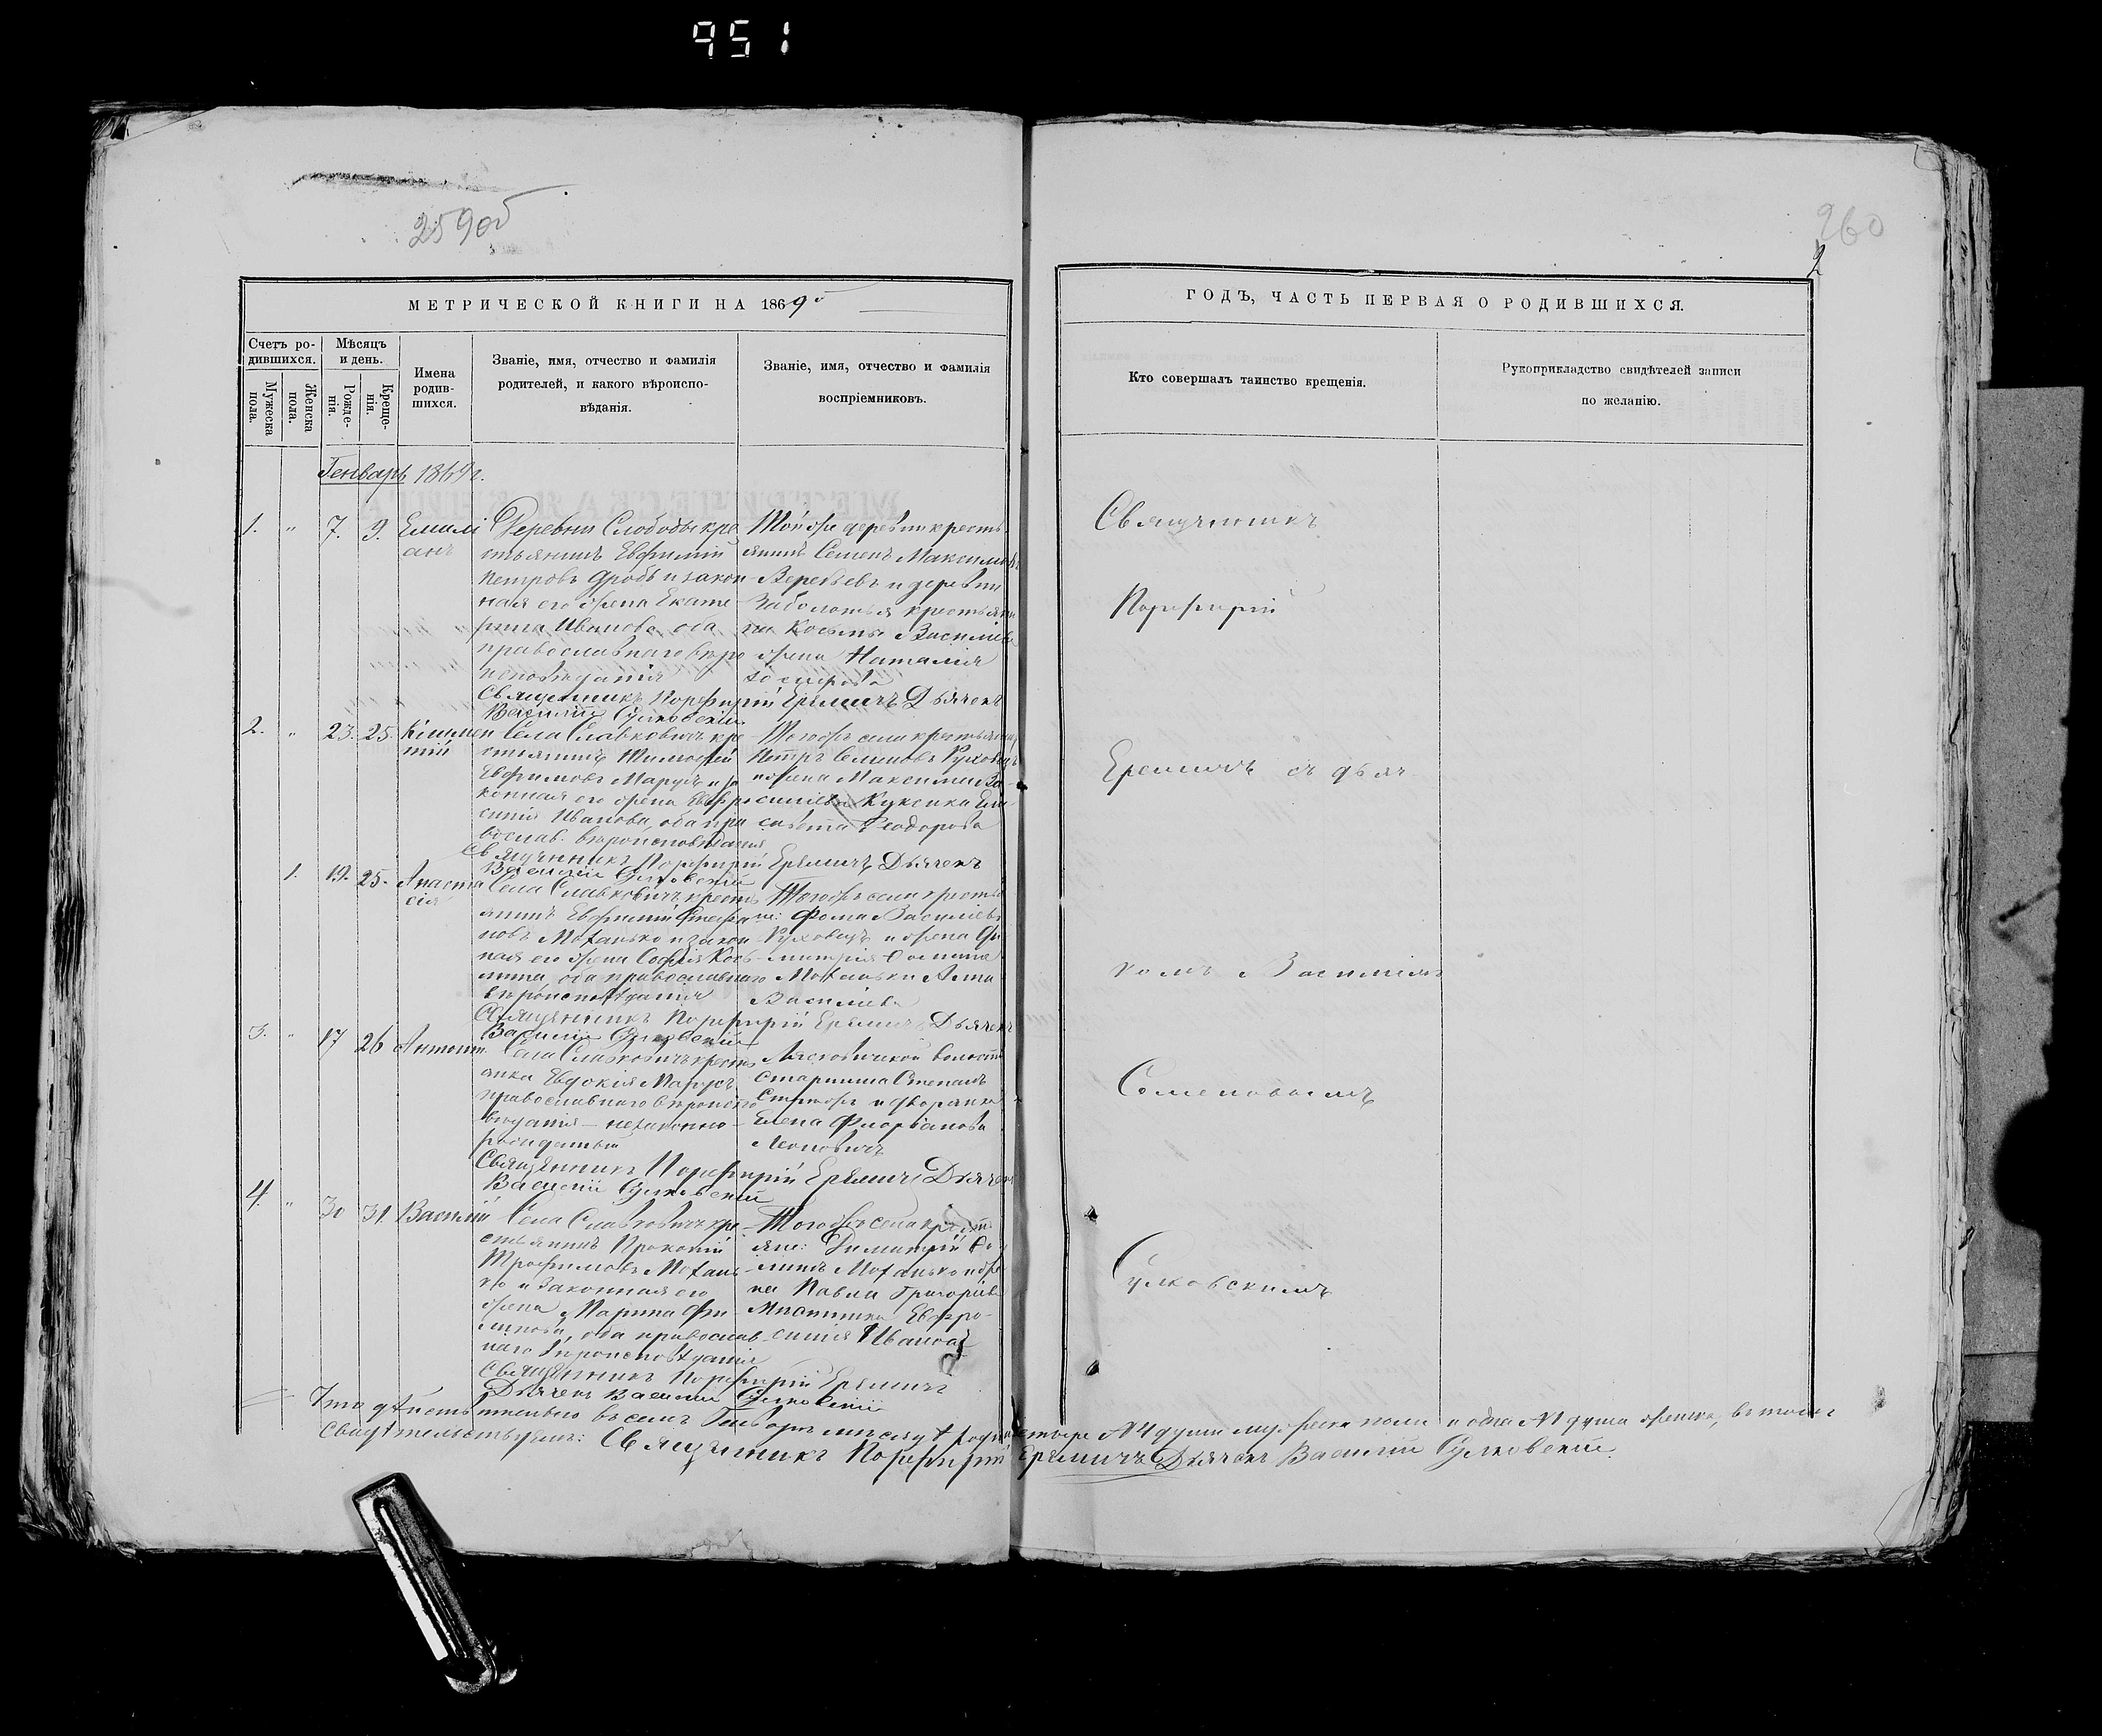 951
259об
260
2
МЕТРИЧЕСКОЙ КНИГИ НА 1869й
ГОДЪ, ЧАСТЬ ПЕРВАЯ О РОДИВШИХСЯ.
Счетъ ро-
дившихся.
Мужеска
пола.
Женска
пола.
Мѣсяцъ
и день.
Рожде-
нія.
Креще-
нія.
Имена
родив-
шихся.
Званіе, имя, отчество и фамилія
родителей, и какого вѣроиспо-
вѣданія.
Званіе, имя, отчество и фамилія
воспріемниковъ.
Кто совершалъ таинство крещенія.
Рукоприкладство свидѣтелей записи
по желанію.
Генварь 1869 г.
1. " 7. 9. Емили
анъ
Деревни Слободы кре
стьянинъ Евфимій
Петровъ Дробъ и закон
ная его жена Екате
рина Иванова, оба
православнаго вѣро
исповѣданія
Той же деревни кресть
янинъ Семенъ Максимовъ
Веребьевъ и деревни
Заболотья крестьяни
на Косьмы Василіева
жена Наталія
Священникъ Порфирій Еремичъ Дьячекъ
Василій Сулковскій
2. " 23. 25. Климен
тій
Села Славковичъ кре
стьянинъ Тимофей
Евфимовъ Марусъ и за
конная его жена Евфро
синія Иванова, оба пра
вослав. вѣроисповѣданія
Тогожъ села крестьянинъ
Петръ Семеновъ Руховецъ
и жена Максима Ва
силіева Куксика Ели
савета Ѳеодорова
Священникъ Порфирій Еремичъ Дьячекъ
Василій Сулковскій
1. 19. 25. Анаста
сія
Села Славковичъ кресть
янинъ Евфимій Стефа
новъ Моханько и закон
ная его жена Софія Кось
мина, оба православнаго
вѣроисповѣданія
Тогожъ села кресть
не: Фома Василіевъ
Руховецъ и жена Ди
митрія Ѳомина
Моханьки Анна
Василіева
Священникъ Порфирій Еремичъ Дьячекъ
Василій Сулковскій
3. " 17 26 Антоній
Села Славковичъ кресть
янка Евдокія Марусъ
православнаго вѣроиспо
вѣданія - незаконно
рожденный
Лясковичской волости
старшина Степанъ
и дворянка
Елена Флоріанова
Леоновичъ
Священникъ Порфирій Еремичъ Дьячекъ
Василій Сулковскій
4. " 30 31. Василій
Села Славковичъ кре
стьянинъ Прокопій
Трофимовъ Мохань
ко и законная его
жена Марина Фи
липова, оба православ
наго вѣроисповѣданія
Тогожъ села кресть
яне: Димитрій Ѳо
минъ Моханько и же
на Павла Григоріева
Евфро
синія Иванова
Священникъ Порфирій Еремичъ
Дьячекъ Василій Сулковскій
Священникъ
Порфирій
Еремичъ съ дьяч
комъ Василіемъ
Семеновымъ
Сулковскимъ
Что дѣйствительно въ семъ Генварѣ мѣсяцѣ родилось четыре №4 души мужеска пола и одна №1 душа женска, въ томъ
свидѣтельствуемъ: Священникъ Порфирій Еремичъ Дьячекъ Василій Сулковскій.